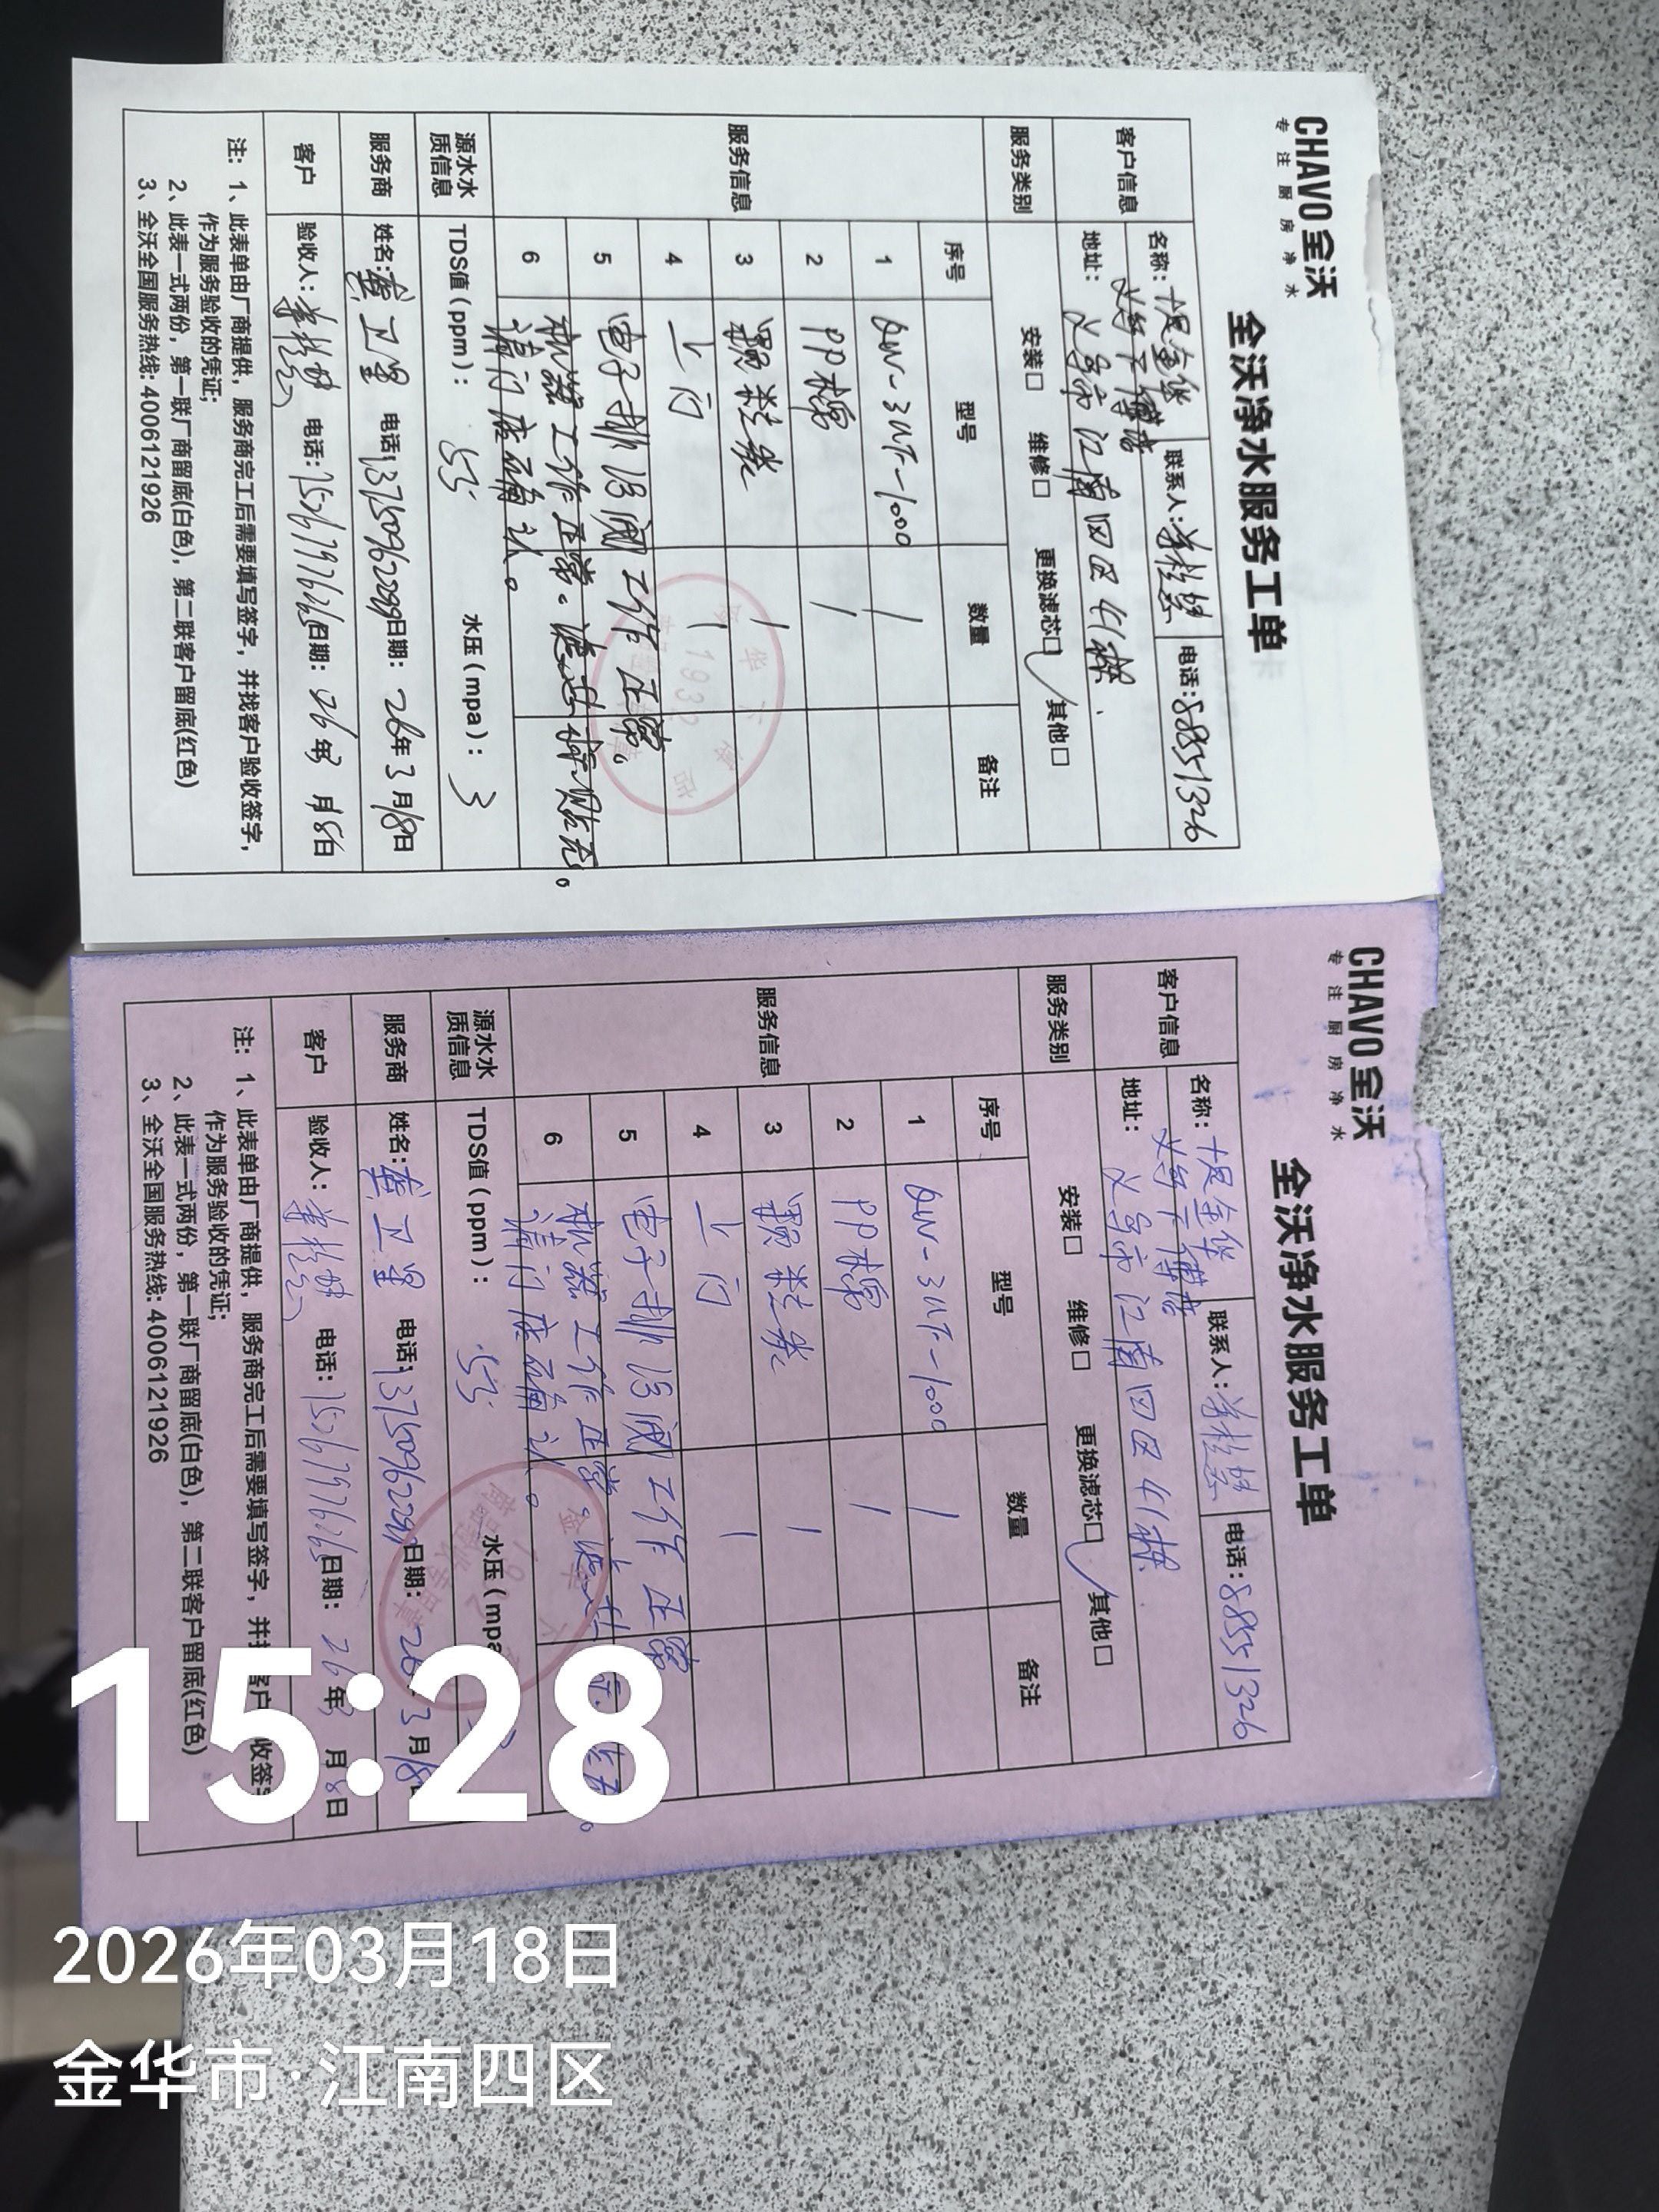 CHAVO 全沃
专注厨房净水
全沃净水服务工单
客户信息
名称：
联系人：
电话：88551326
地址： 义乌市江南四区41栋
服务类别
安装□ 维修□ 更换滤芯□ 其他□
服务信息
序号 型号 数量 备注
1 QW-3UF-1000 1
2 PP棉 1
3 颗粒炭 1
4 上门 1
5 电子排污阀工作正常。
6 机器工作正常。滤芯
请门店确认。
源水水质信息
TDS值（ppm）： 55 水压（mpa）： 3
服务商
姓名：龚卫星 电话：13750962099 日期：26年3月18日
客户
验收人： 电话： 日期：26年3月18日
注：1、此表单由厂商提供，服务商完工后需要填写签字，并找客户验收签字，
作为服务验收的凭证；
2、此表一式两份，第一联厂商留底(白色)，第二联客户留底(红色)
3、全沃全国服务热线：4006121926
1932
CHAVO 全沃
专注厨房净水
全沃净水服务工单
客户信息
名称：
联系人：
电话：88551326
地址： 义乌市江南四区41栋
服务类别
安装□ 维修□ 更换滤芯□ 其他□
服务信息
序号 型号 数量 备注
1 QW-3UF-1000 1
2 PP棉 1
3 颗粒炭 1
4 上门 1
5 电子排污阀工作正常
6 机器工作正常。滤芯
请门店确认。
源水水质信息
TDS值（ppm）： 55 水压（mpa
服务商
姓名：龚卫星 电话： 日期：26 3月18
客户
验收人： 电话： 日期：26年3月18日
注：1、此表单由厂商提供，服务商完工后需要填写签字，并找客户 收签字
作为服务验收的凭证；
2、此表一式两份，第一联厂商留底(白色)，第二联客户留底(红色)
3、全沃全国服务热线：4006121926
15:28
2026年03月18日
金华市·江南四区